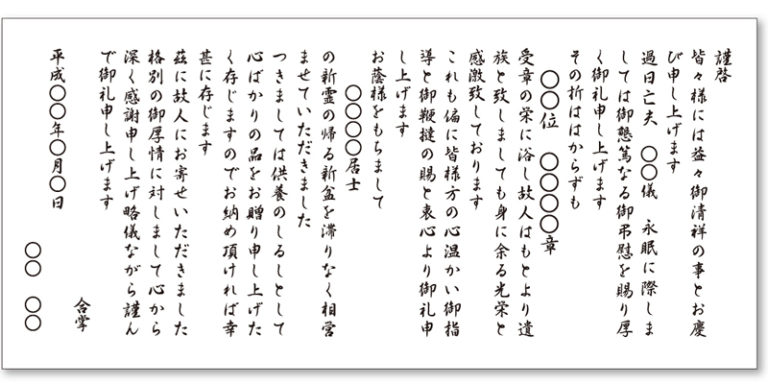 謹啓
皆々様には益々御清祥の事とお慶
び申し上げます
過日亡夫　〇〇儀　永眠に際しま
しては御懇篤なる御弔慰を賜り厚
く御礼申し上げます
その折ははからずも
〇〇位　〇〇〇〇章
受章の栄に浴し故人はもとより遺
族と致しましても身に余る光栄と
感激致しております
これも偏に皆様方の心温かい御指
導と御鞭撻の賜と衷心より御礼申
し上げます
お蔭様をもちまして
〇〇〇〇居士
の新霊の帰る新盆を滞りなく相営
ませていただきました
つきましては供養のしるしとして
心ばかりの品をお贈り申し上げた
く存じますのでお納め頂ければ幸
甚に存じます
茲に故人にお寄せいただきました
格別の御厚情に対しまして心から
深く感謝申し上げ略儀ながら謹ん
で御礼申し上げます
合掌
平成〇〇年〇月〇日
〇〇　〇〇